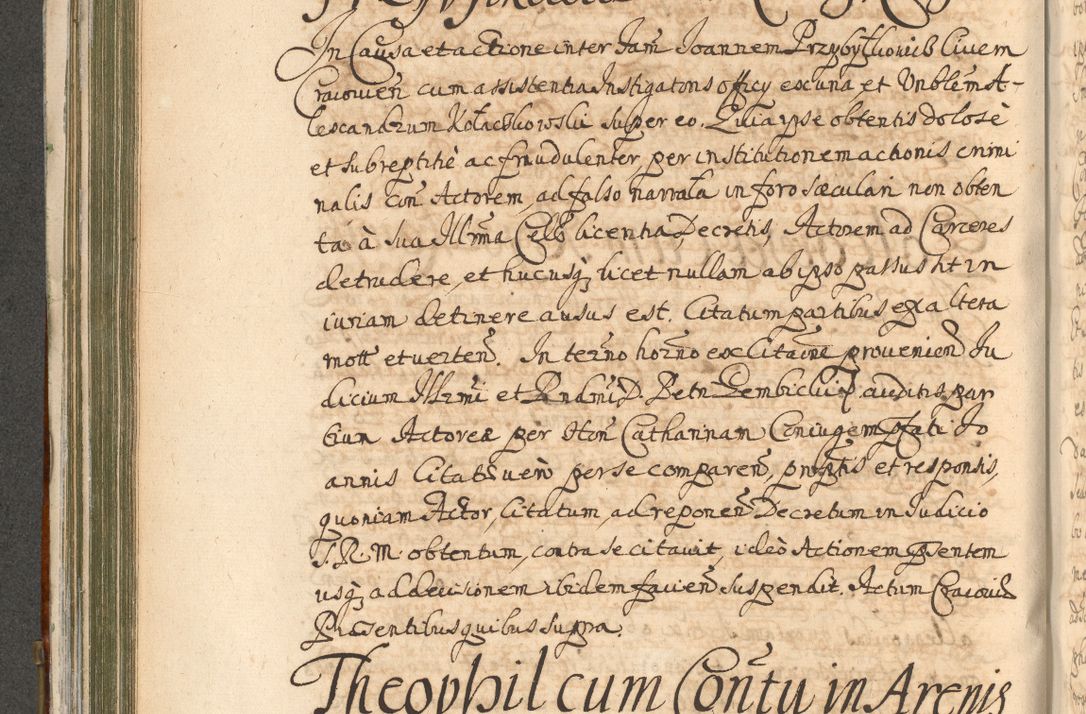 In Causa et actione inter Fam Joannem Przybyłkowicb Civem
Cracovien cum assistentia Instigatoris officy ex una et Vnblem A-
lexandrum Kołaczkowski super eo. Quia ipse obtentis dolose
et subreptitiè ac fraudulenter per institutionem actionis crimi
nalis con Actorem, ad falso narrata in foro sæculari non obten
ta à sua Illma Celsne licentia, Decretis, Actorem ad Carceres
detrudere, et hucusq licet nullam ab ipso passus sit in
iuriam detinere ausus est. Citatum partibus ex altera
mott et verten. In termno horno ex Citaône provenien Ju
dicium Illmi et Rndmi D. Petri Gembicki auditis par
tium Actorea per Hon Catharinam Coniugem pfati Jo
annis Citat vero per se comparen, proptis et responsis,
quoniam Actor, Citatum, ad reponen Decretum in Judicio
S. R. M. obtentum, contra se citavit, ideò Actionem psentem
usq ad decisionem ibidem facien suspendit. Actum Cracoviæ
Præsentibus quibus supra.
Theophil cum Contu in Arenis